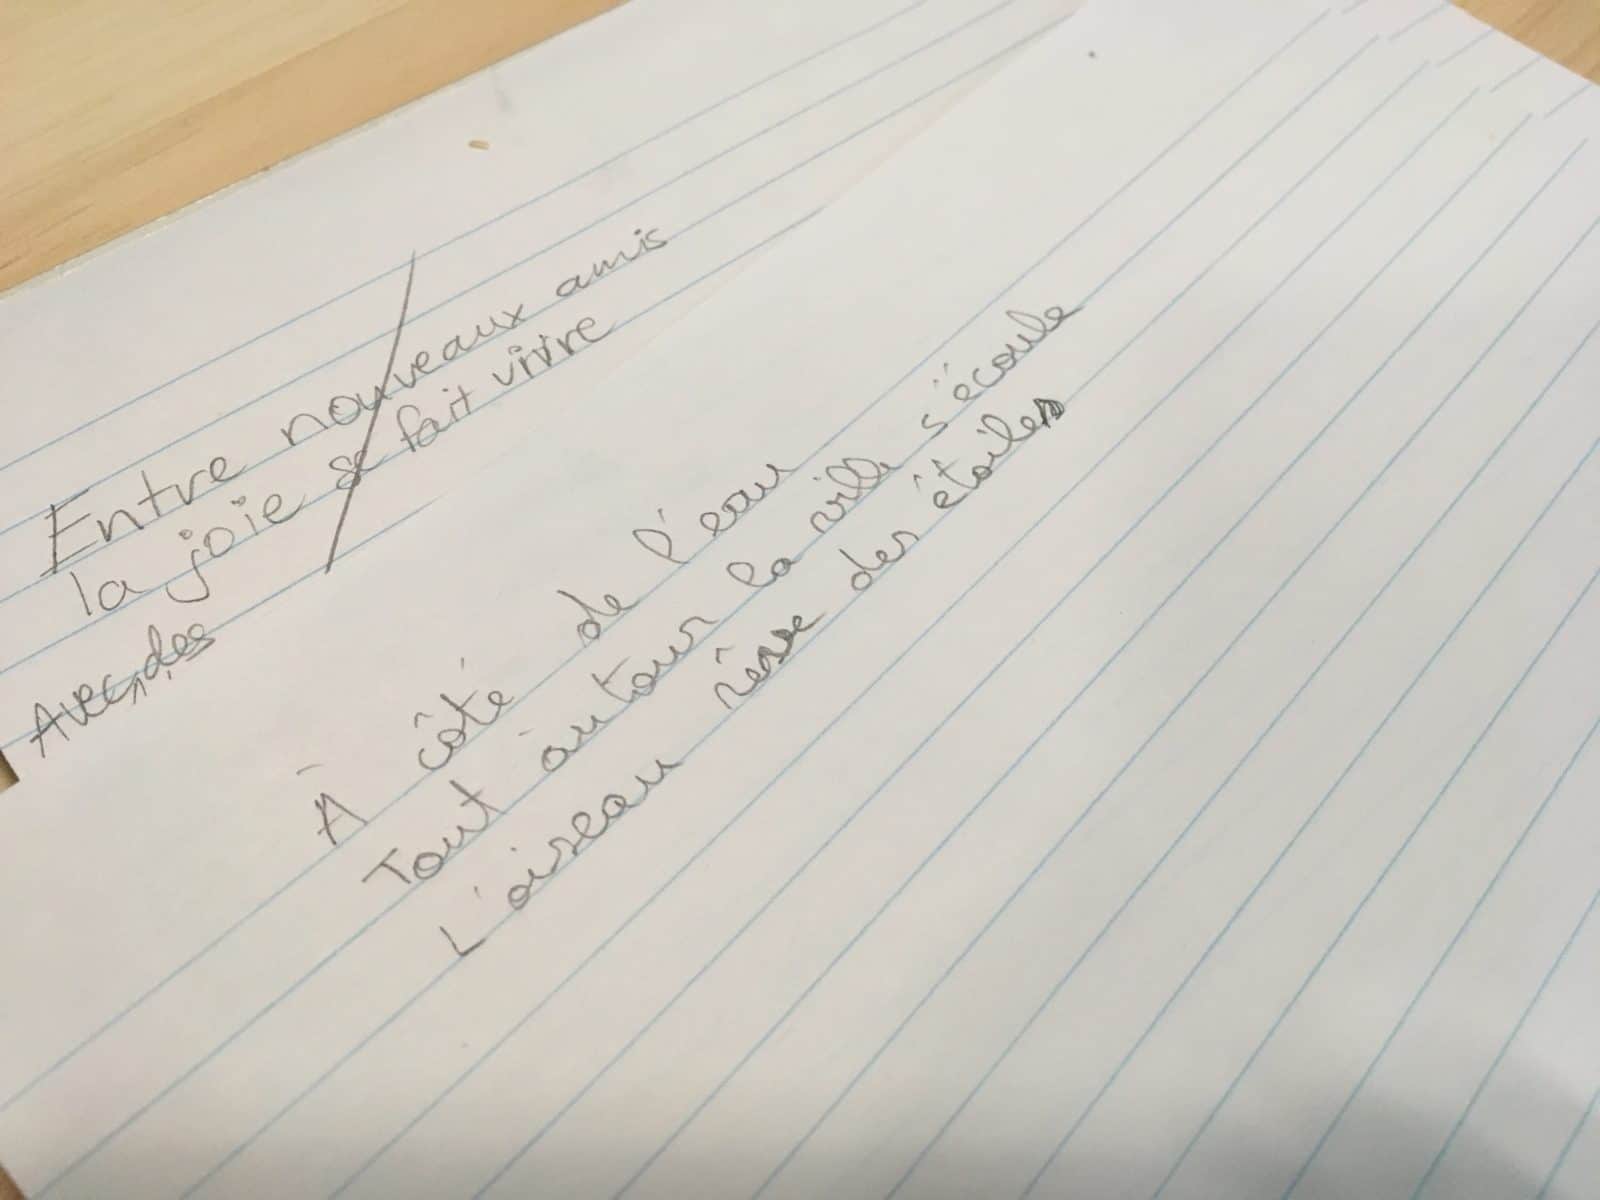 Entre nouveaux amis
la joie se fait vivre
Avec des
À côté de l'eau
Tout àutour la ville s'écoule
L'oiseau rêve des étoiles